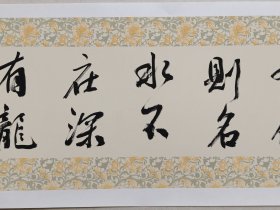 則名
水不
在深
有龍